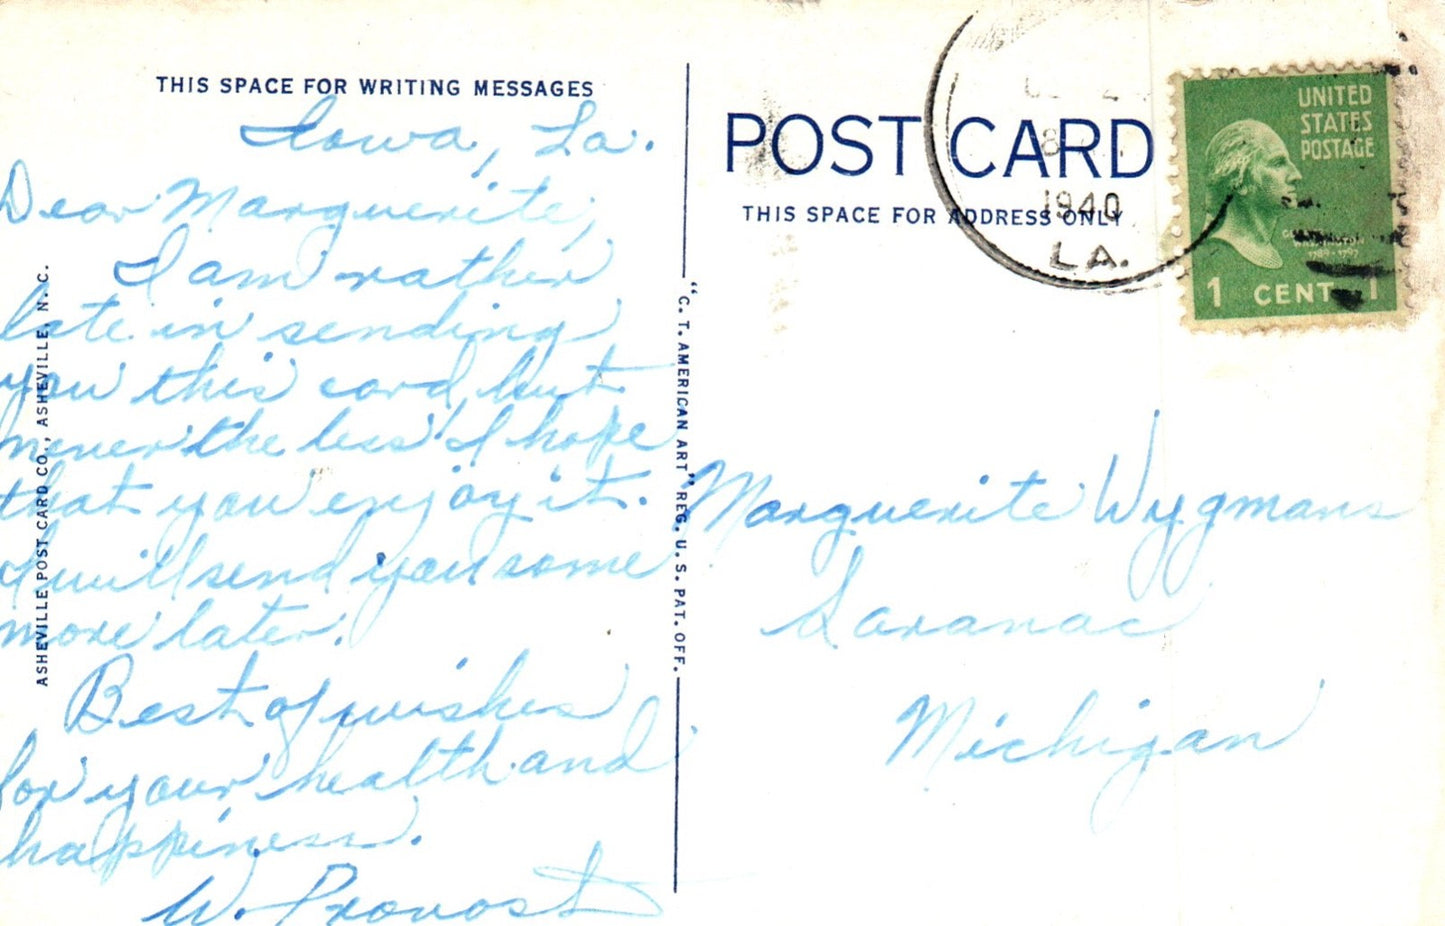 THIS SPACE FOR WRITING MESSAGES
Iowa, La.
Dear Marguerite,
I am rather
late in sending
you this card, but
never the less I hope
that you enjoy it.
I will send you some
more later.
Best of wishes
for your health and
happiness.
W. Provost
ASHEVILLE POST CARD CO., ASHEVILLE, N. C.
"C. T. AMERICAN ART" REG. U. S. PAT. OFF.
POST CARD
THIS SPACE FOR ADDRESS ONLY
1940
LA.
UNITED
STATES
POSTAGE
1 CENT 1
Marguerite Wygmans
Saranac
Michigan